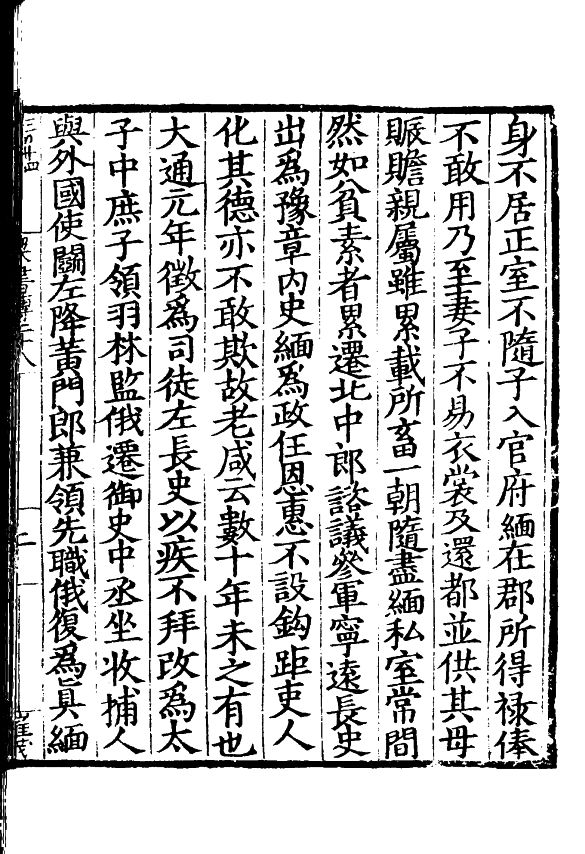 身不居正室不隨子入官府緬在郡所得祿俸
不敢用乃至妻子不易衣裳及還都並供其母
賑贍親屬雖累載所畜一朝隨盡緬私室常閒
然如貧素者累遷北中郎諮議參軍寧遠長史
出爲豫章內史緬爲政任恩惠不設鈎距吏人
化其德亦不敢欺故老咸云數十年未之有也
大通元年徵爲司徒左長史以疾不拜改爲太
子中庶子領羽林監俄遷御史中丞坐收捕人
與外國使鬭左降黃門郎兼領先職俄復爲眞緬